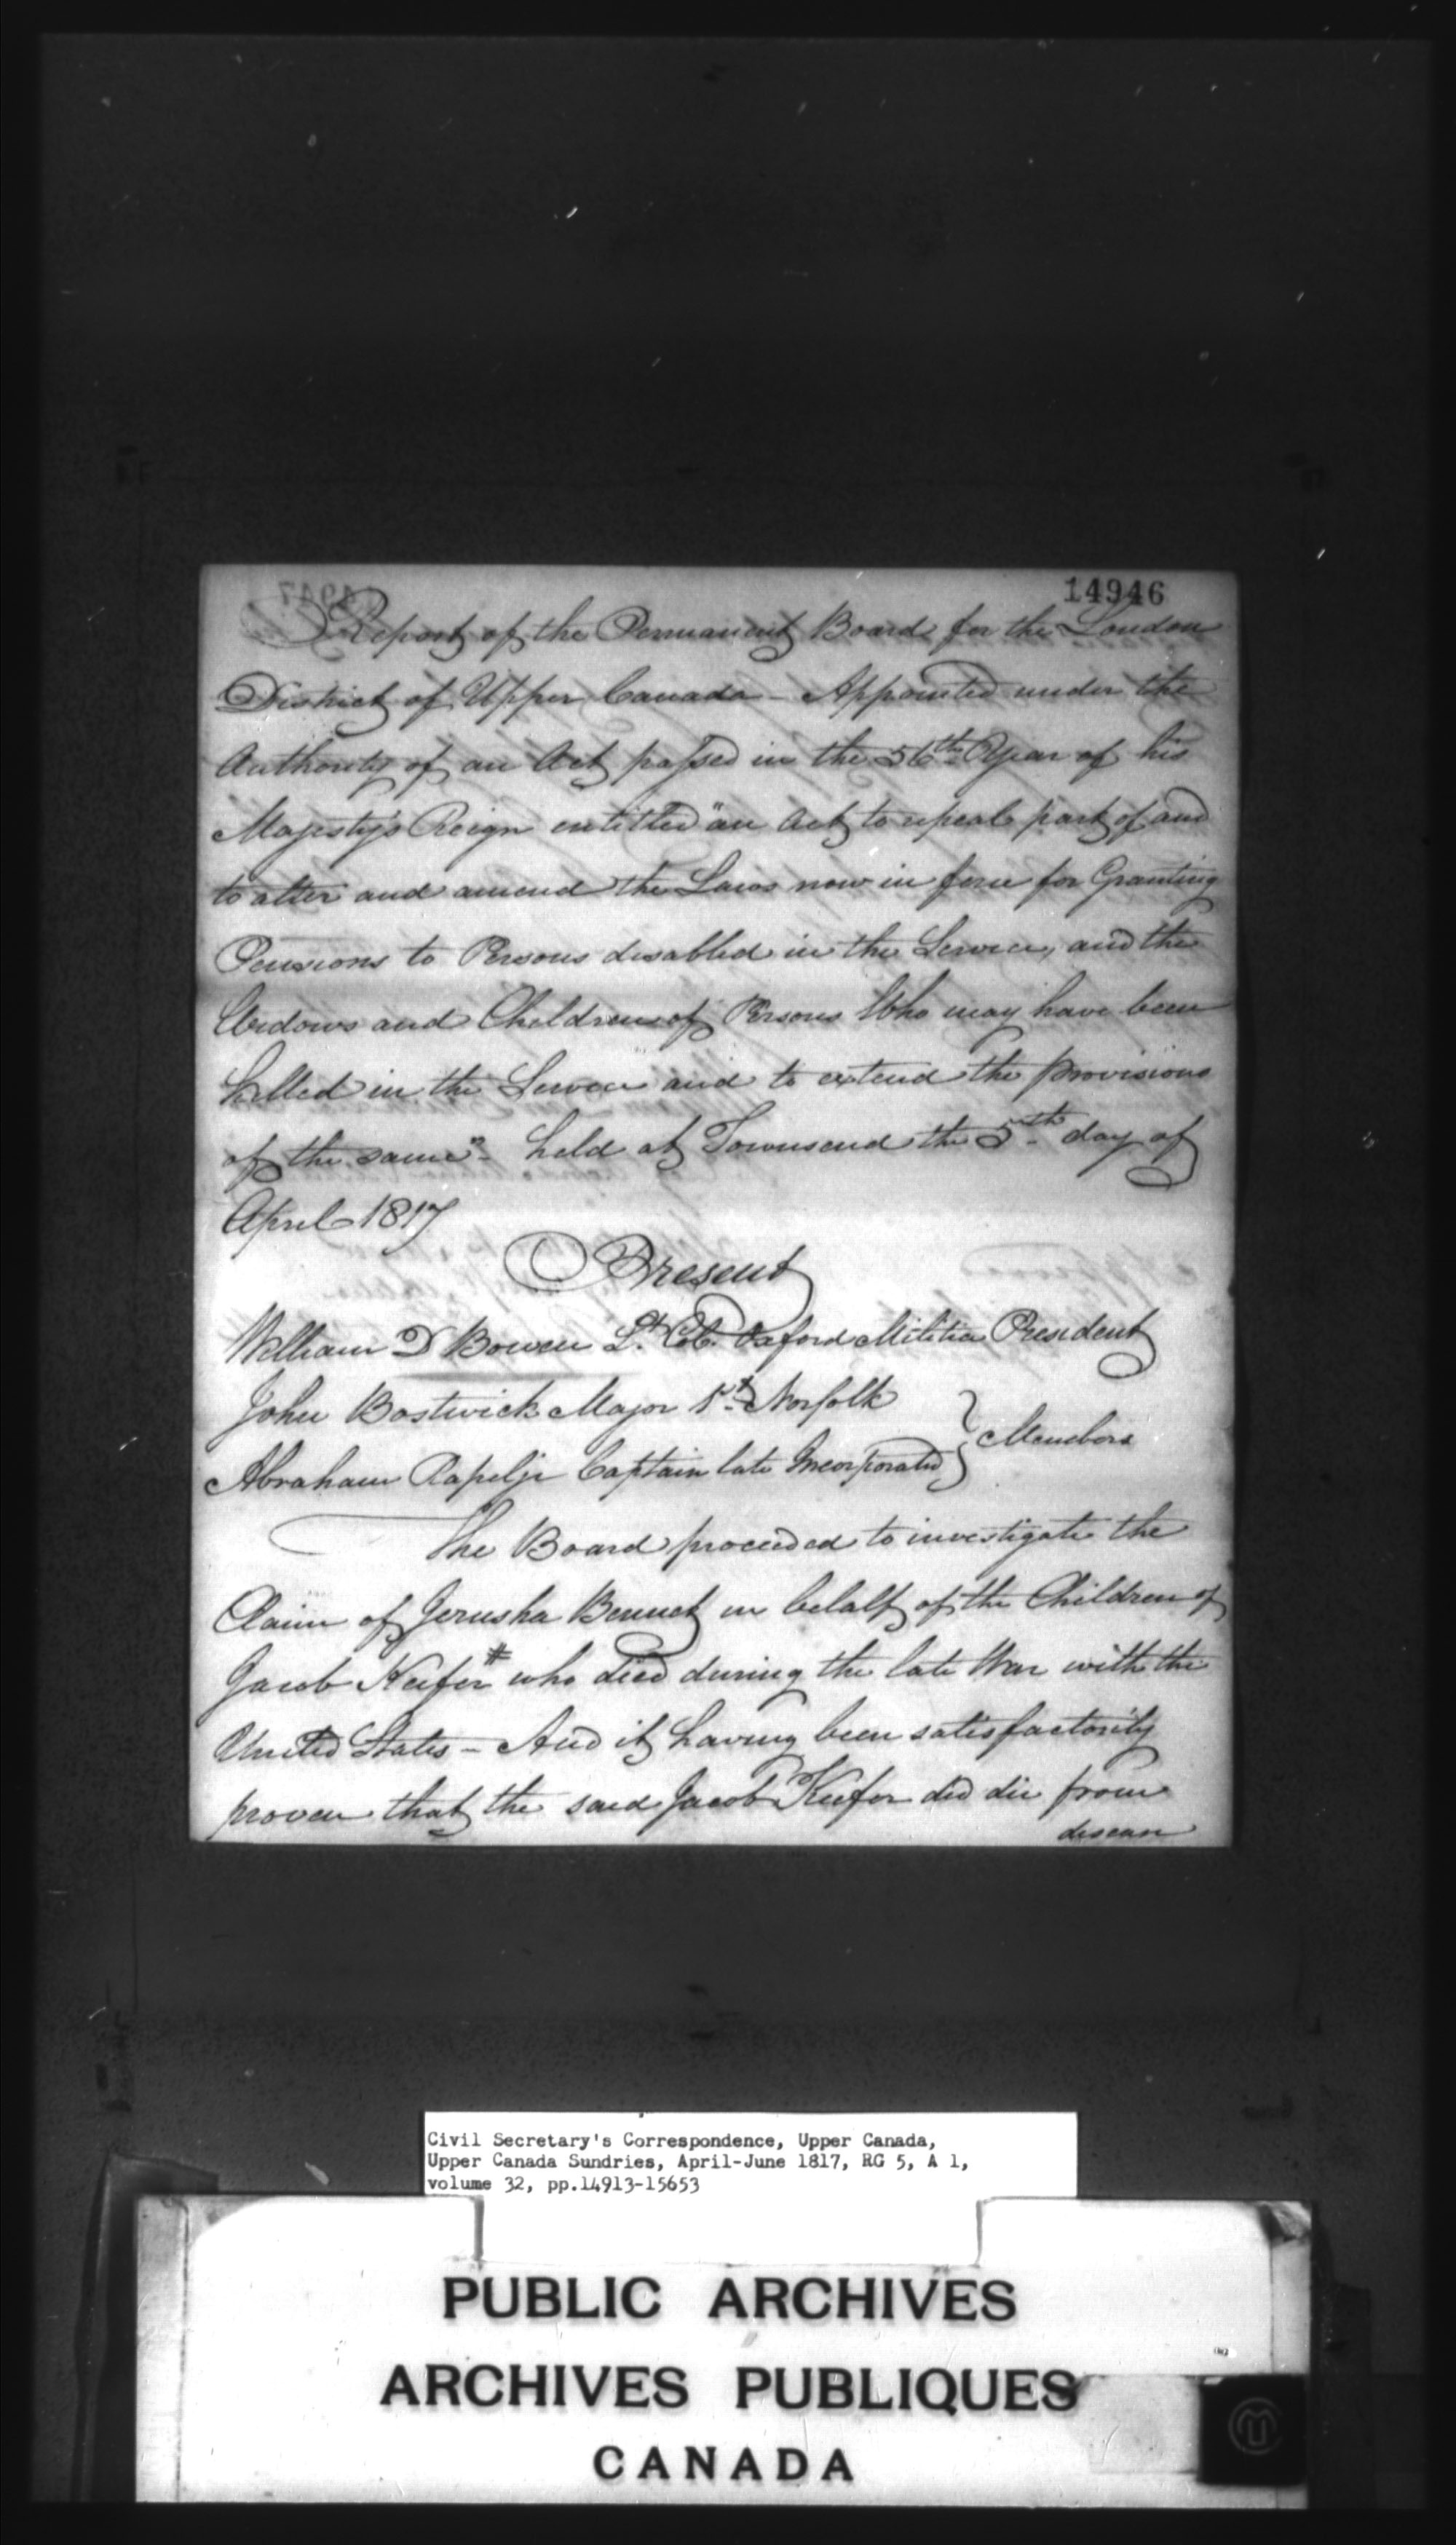 14946
Report of the Permanent Board for the London
District of Upper Canada - Appointed under the
Authority of an Act passed in the 56th Year of his
Majesty's Reign entitled "an Act to repeal part of and
to alter and amend the Laws now in force for Granting
Pensions to Persons disabled in the Service, and the
Widows and Children of Persons Who may have been
killed in the Service and to extend the provisions
of the same" - held at Townsend the 5th day of
April 1817
Present
William D Bowen Lt. Col. Oxford Militia President
John Bostwick Major 1st Norfolk
Abraham Rapelje Captain late Incorporated } Members
The Board proceeded to investigate the
Claim of Jerusha Bennet in behalf of the Children of
Jacob Keefer # who died during the late War with the
United States - And it having been satisfactorily
proven that the said Jacob Keefer did die from
disease
Civil Secretary's Correspondence, Upper Canada,
Upper Canada Sundries, April-June 1817, RG 5, A 1,
volume 32, pp.14913-15653
PUBLIC ARCHIVES
ARCHIVES PUBLIQUES
CANADA